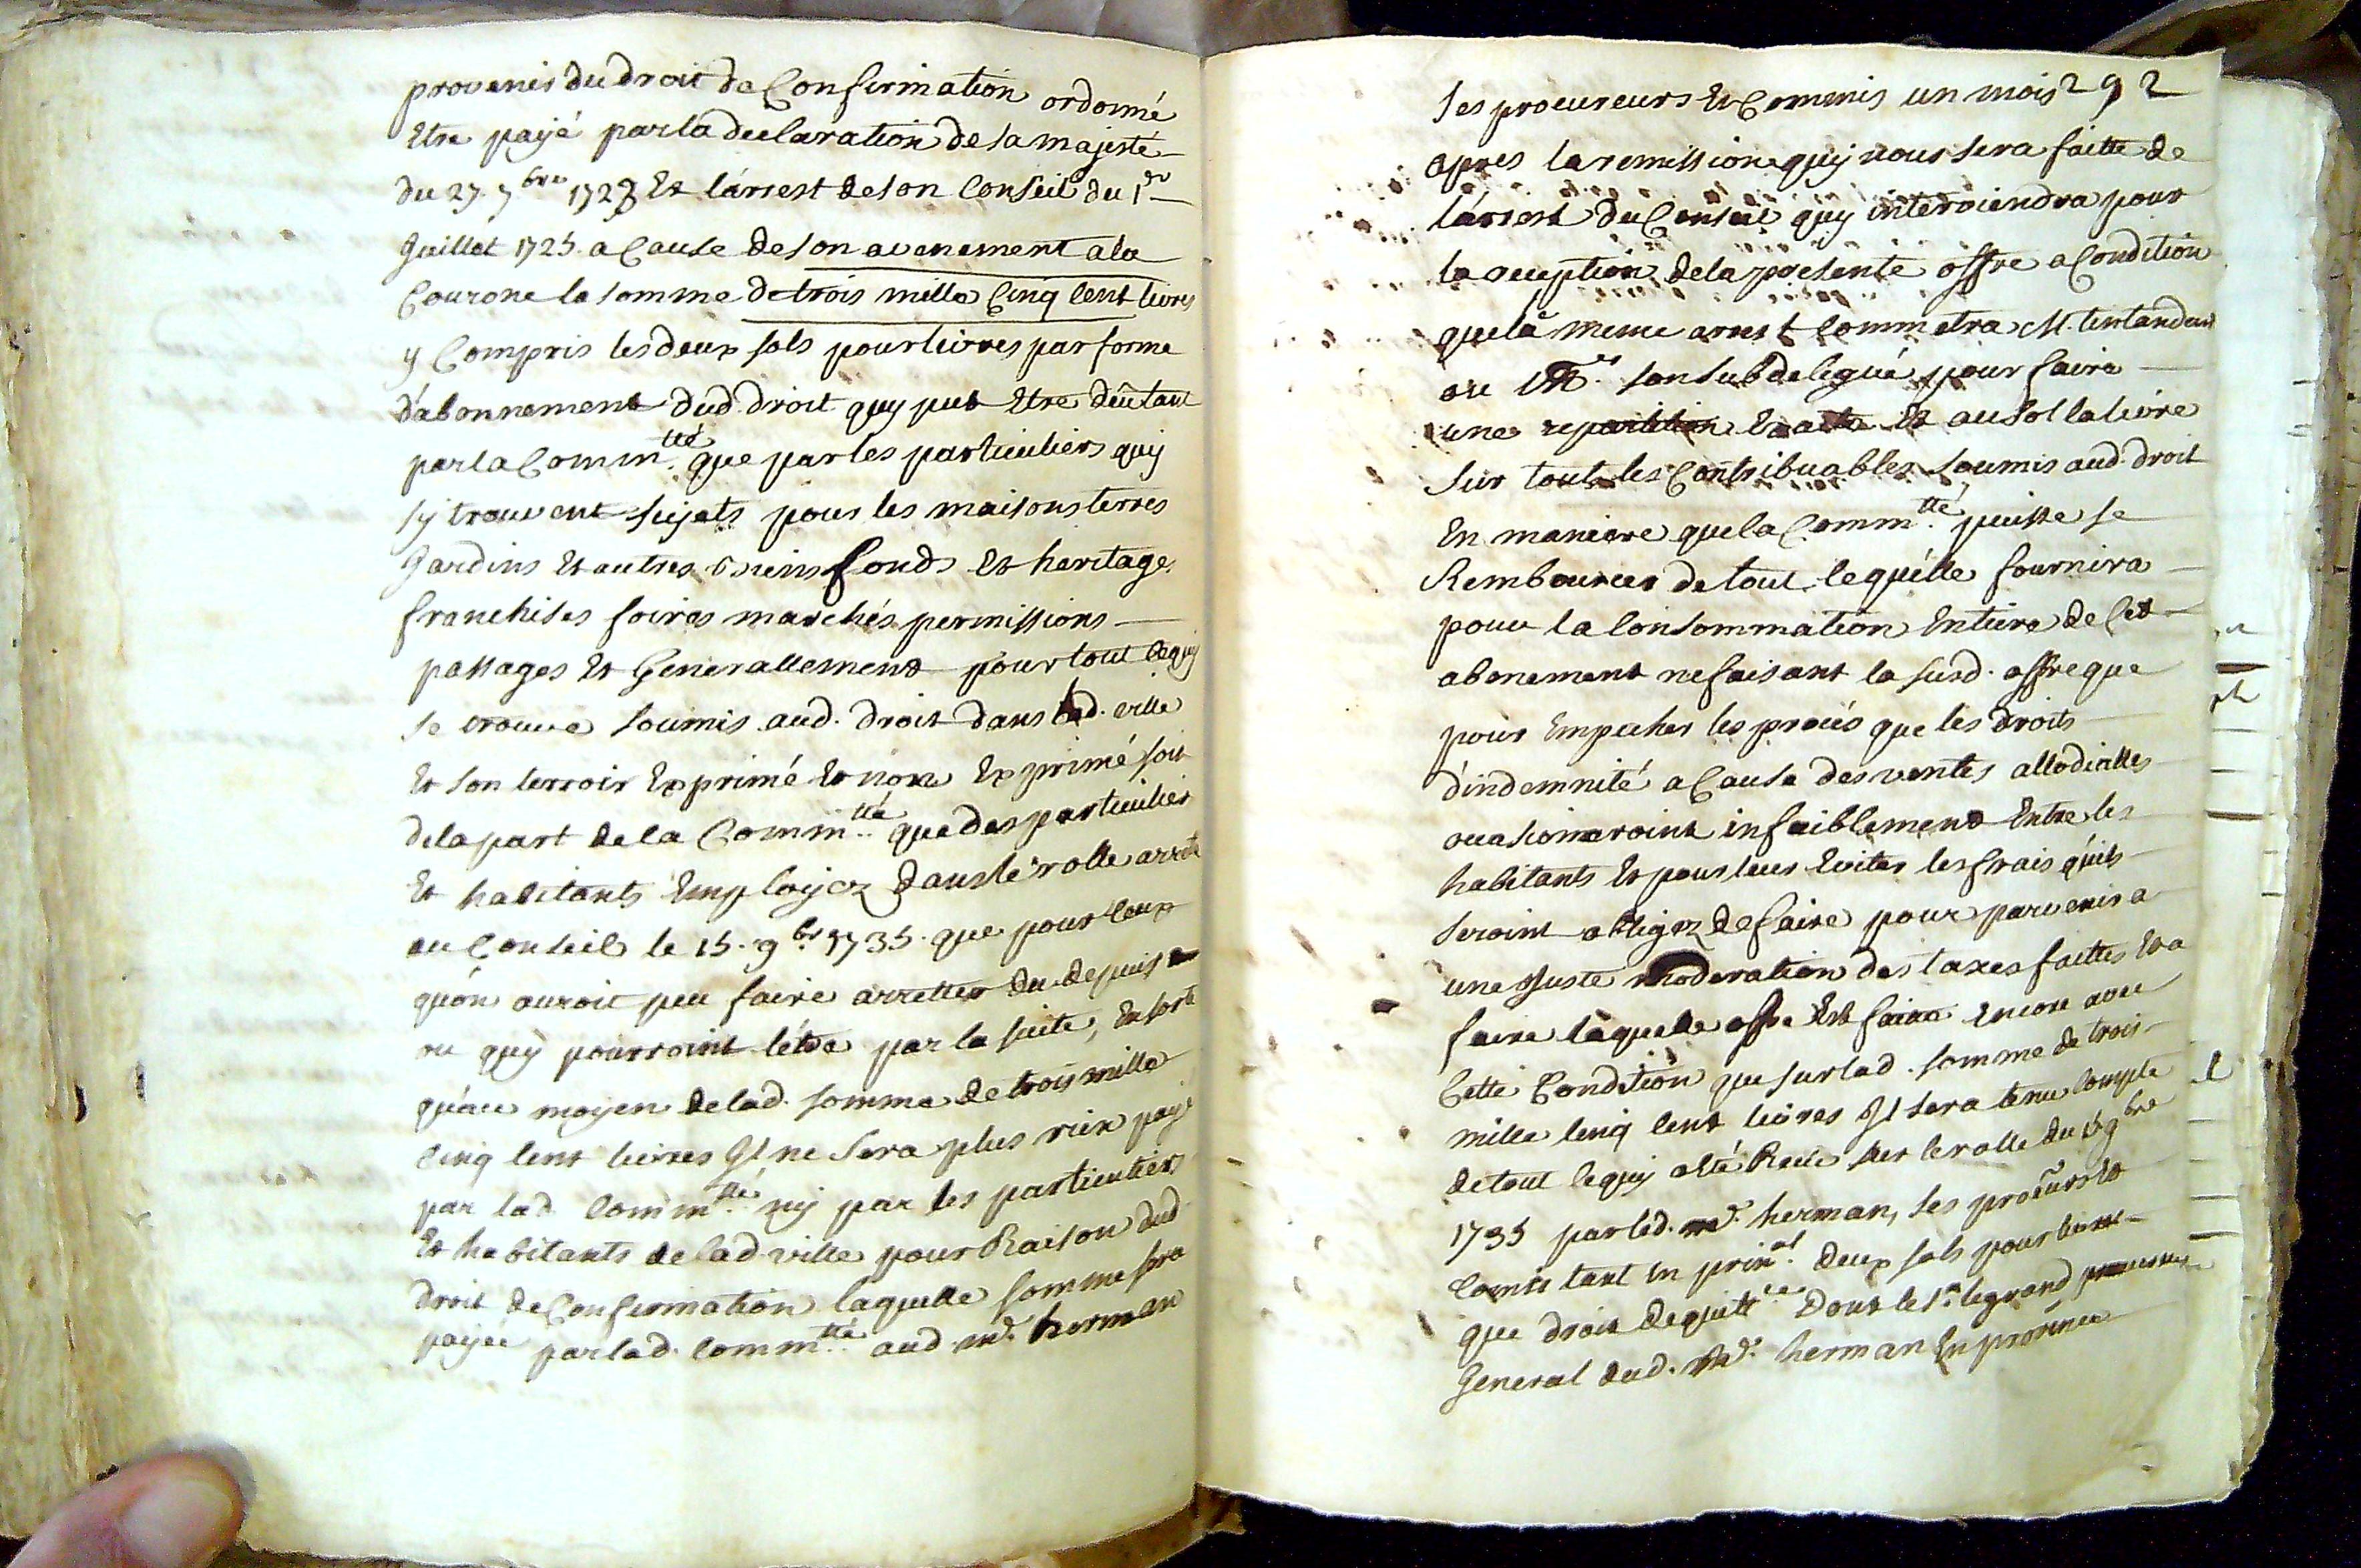 provenir du droit de Confirmation ordonné
Etre payé par la declaration de sa majesté
du 27. 7bre 1723 Et l'arrest de son Conseil du 1er
Juillet 1725. a Cause de son avenement a la
Courone la somme de trois mille Cinq Cent livres
y Compris les deux sols pour livres par forme
d'abonnement dud. droit quy put Etre deu tant
par la Commtté. que par les particuliers quy
sy trouvent sujets pour les maisons terres
Jardins Et autres biens fonds Et heritage
franchises foires marchés permissions
passages Et Generallement pour tout ce quy
se trouve soumis aud. droit dans lad. ville
Et son terroir Exprimé Et non Exprimé soit
de la part de la Commtté. que des particulier
Et habitants Employez dans le rolle arreté
au Conseil le 15. 9br. 1735. que pour Ceux
qu'on auroit peu faire arretter du depuis
ou quy pourroint l'etre par la suite, En sorte
qu'au moyen de lad. somme de trois mille
Cinq Cent livres Il ne sera plus rien payé
par lad. Commtté. ny par les particuliers
Et habitants de lad. ville pour Raison dud.
droit de Confirmation laquelle somme sera
payée par lad. Commtté. aud. md. herman
292
ses procureurs Et Commis un mois
apres la remission quy nous sera faitte de
l'arrest du Conseil quy interviendra pour
la aceeption de la presente offre a Condition
que le meme arrest Commetra M. lintandant
ou Mr. son subdelegué pour faire
une repartition Exacte Et au sol la livre
sur touts les Contribuables soumis aud. droit
En maniere que la Commtté. puisse se
Rembourcer de tout ce qu'elle fournira
pour la Consommation Entiere de Cet
abonement ne faisant la susd. offre que
pour Empecher les procés que les droits
d'indemnité a Cause des ventes allodialles
ocasioneroint infaiblement Entre les
habitants Et pour leur Eviter les frais qu'ils
seroint obligez de faire pour parvenir a
une Juste moderation des taxes faittes Et a
faire laquelle offre Est faitte Encore avec
Cette Condition que sur lad. somme de trois
mille Cinq Cent livres Il sera tenu Compte
de tout ce quy a eté Receu sur le rolle du 15 9bre
1735 par led. md. herman, ses procurs Et
Comis tant en prinal. deux sols pour livre
que droit de quittce. dont le sr. legrand procureur
General dud. Md. herman En province